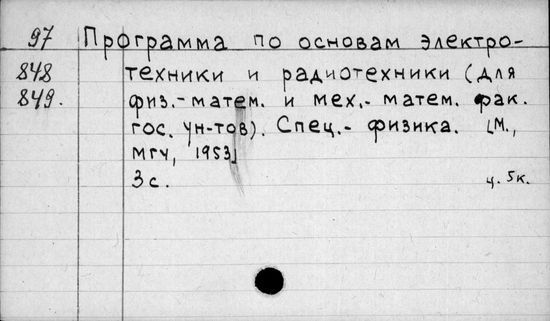 97 Программа по основам электро-
848 техники и радиотехники (для
849. физ.-матем. и мех.-матем. фак.
гос. ун-тов). Спец.- физика. [М.,
МГУ, 1953]
3 с. ц. 5к.